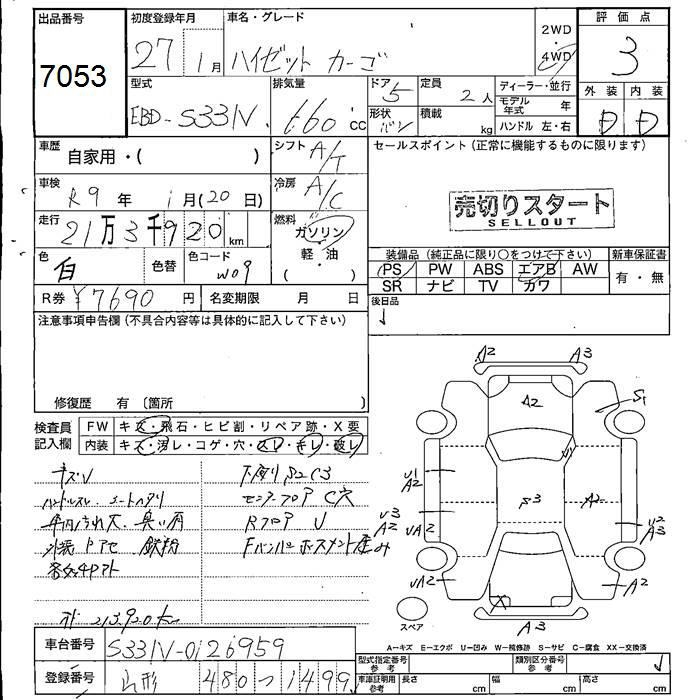 出品番号
7053
初度登録年月
27 1月
車名・グレード
ハイゼット カーゴ
2WD
・
4WD
評価点
3
型式
EBD-S331V
排気量
660 cc
ドア 5
形状 バン
定員 2人
積載 kg
ディーラー・並行
モデル年式 年
ハンドル 左・右
外装 内装
D D
車歴
自家用・( )
シフト A/T
セールスポイント (正常に機能するものに限ります)
車検
R9年 1月(20日)
冷房 A/C
売切りスタート
SELLOUT
走行
21万3千920km
燃料
ガソリン
軽・油
( )
色
白
色替
色コード
W09
装備品 (純正品に限り○をつけて下さい)
新車保証書
PS PW ABS エアB AW
SR ナビ TV カワ
有・無
R券 ¥7690円
名変期限 月 日
後日品
注意事項申告欄 (不具合内容等は具体的に記入して下さい)
修復歴 有 〔箇所 〕
検査員記入欄
FW キズ・飛石・ヒビ割・リペア跡・X要
内装 キズ・汚レ・コゲ・穴・スレ・キレ・破レ
キズV
ハンドルスレ シートヘタリ
車内汚れ大 臭い有
鉄粉
下廻り S2C3
センターフロア C穴
Rフロア U
計 213,920km
A2 A3
A2
S1
U1
A2
S3
A2
U3
A2
UA2
U2
A3
UA2
A2
X
A3
スペア
A-キズ E-エクボ U-凹み W-補修跡 S-サビ C-腐食 XX-交換済
車台番号
S331V-0126959
型式指定番号
参考
類別区分番号
参考
登録番号
山形 480 つ 1499
車庫証明用
参考
長さ cm
幅 cm
高さ cm